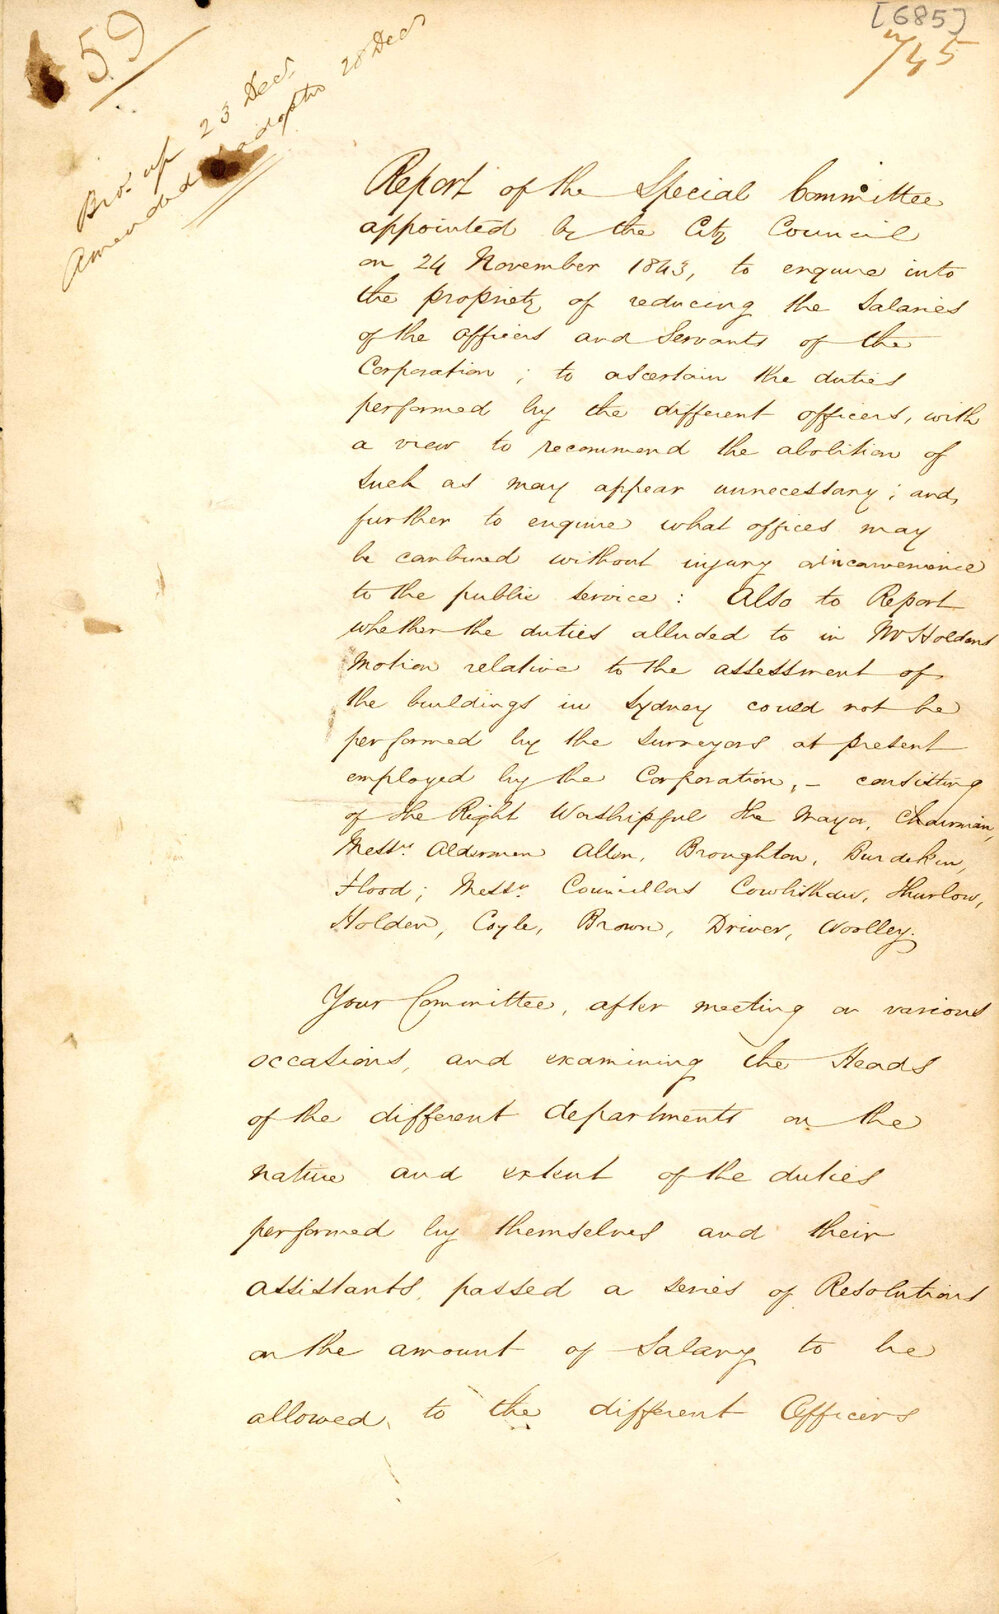 [685]
745
59
Bro. up 23 Decr
Amended & adopted 28 Decr
Report of the Special Committee
appointed by the City Council
on 24 November 1843, to enquire into
the propriety of reducing the Salaries
of the officers and Servants of the
Corporation; to ascertain the duties
performed by the different officers, with
a view to recommend the abolition of
such as may appear unnecessary; and,
further to enquire what offices may
be combined without injury or inconvenience
to the public service: Also to Report
whether the duties alluded to in Mr Holdens
Motion relative to the assessment of
the buildings in Sydney could not be
performed by the surveyors at present
employed by the Corporation, – consisting
of the Right Worshipful the Mayor, Chairman,
Messrs. Aldermen Allen, Broughton, Burdekin,
Flood; Messrs. Councillors Cowlishaw, Thurlow,
Holden, Coyle, Brown, Driver, Woolley.
Your Committee, after meeting on various
occasions, and examining the Heads
of the different departments on the
nature and extent of the duties
performed by themselves and their
assistants, passed a series of Resolutions
on the amount of Salary to be
allowed to the different Officers